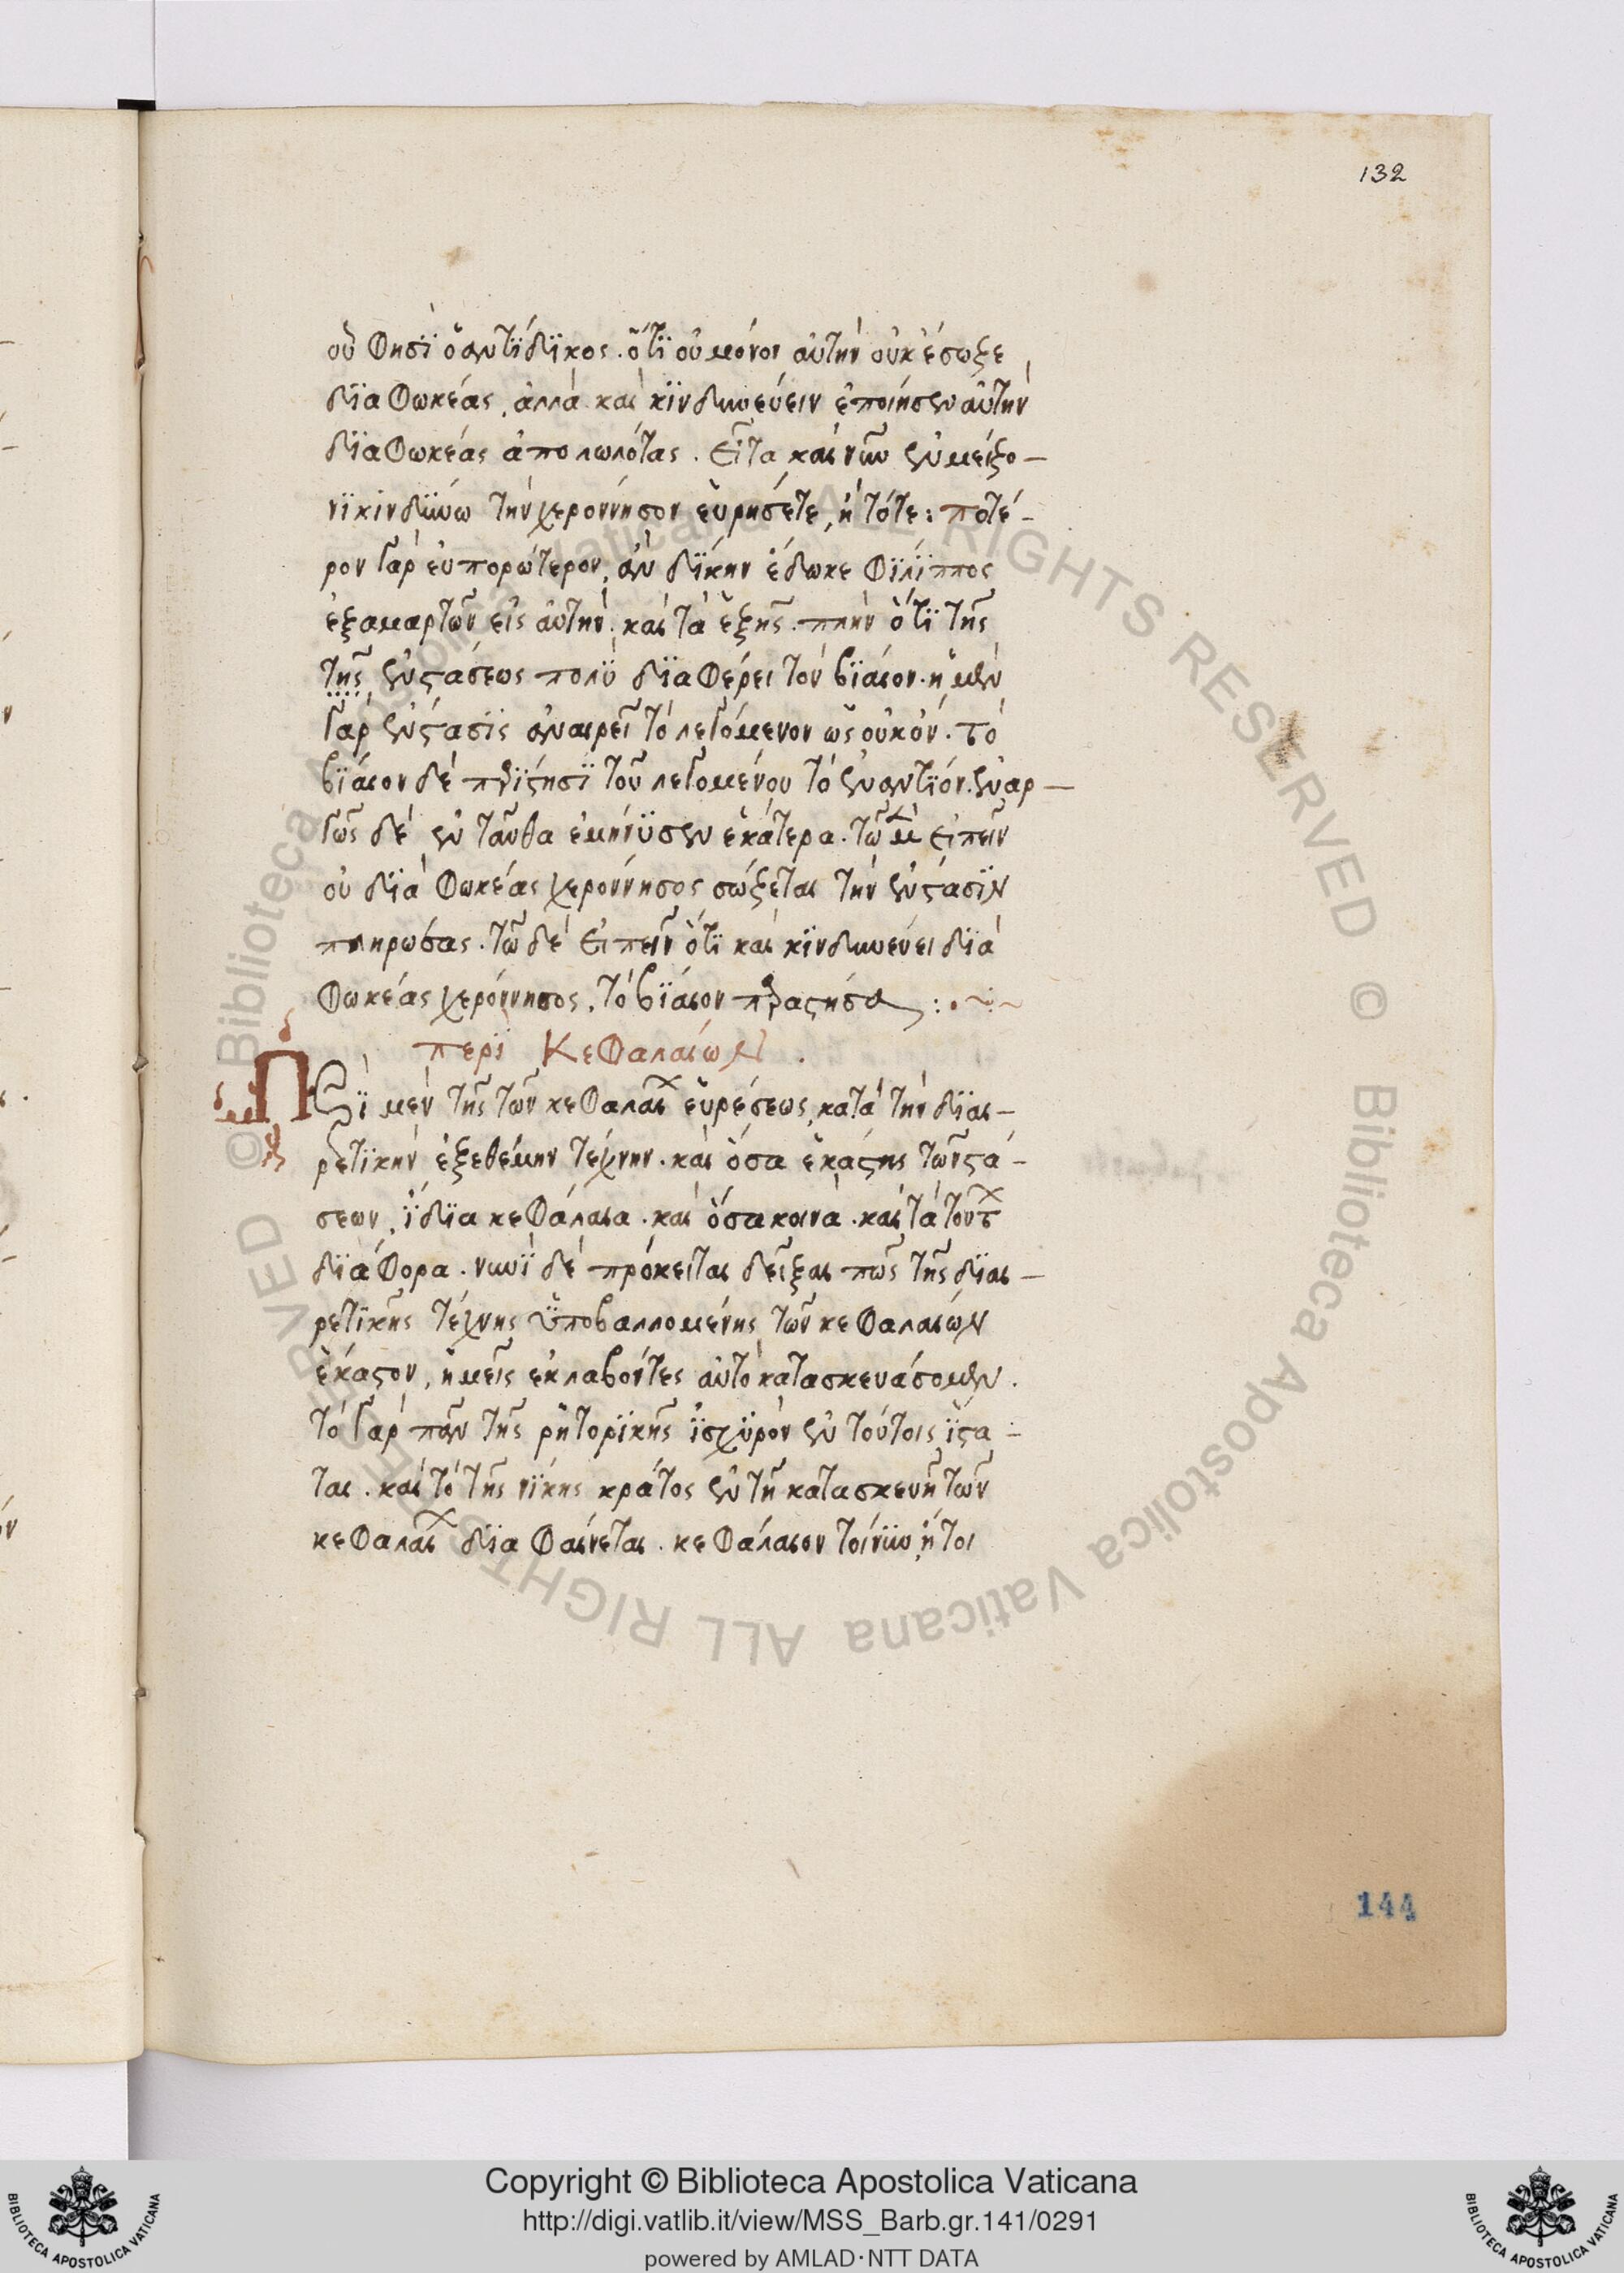 132
οὗ φησϊ ὁ ἀντϊδϊκος. ὅτϊ οὐ μόνον αὐτὴν οὐκ ἔσωζε
δϊα φωκέας, ἀλλὰ καὶ κϊνδυνεύειν ἐποίησεν αὐτὴν
δϊα φωκέας ἀπολωλότας. εἶτα καὶ νῦν ἐν μείζο-
νϊ κινδύνω τὴν χερόννησον εὑρήσετε, ἢ τότε: πότε-
ρον γὰρ εὐπορώτερον, ἂν δϊκην ἔδωκε φϊλϊππος
ἐξαμαρτῶν εἰς αὐτὴν. καὶ τὰ ἑξῆς. πλὴν ὅτϊ τῆς
τῆς ἐνστάσεως πολὺ δϊαφέρει τὸν βϊαιον. ἡ μὲν
γὰρ ἔνστασϊς ἀναιρεῖ τὸ λεγόμενον ὡς οὐκ ὄν. τὸ
βϊαιον δὲ περιΐστησϊ τοῦ λεγομένου τὸ ἐναντϊόν. ἐναρ-
γῶς δὲ ἐν ταῦθα ἐμήνϋσεν ἑκάτερα. τῶ μὲν εἰπεῖν
οὐ δϊὰ φωκέας χερόννησος σώζεται τὴν ἔνστασϊν
πληρώσας. τῶ δὲ εἰπεῖν ὅτϊ καὶ κϊνδυνεύει δϊὰ
φωκέας χερόννησος, τὸ βϊαιον παραστήσας :·~
περὶ κεφαλαίων.
Περϊ μὲν τῆς τῶν κεφαλαίων εὑρέσεως, κατὰ τὴν δϊαι-
ρετϊκὴν ἐξεθέμην τέχνην. καὶ ὅσα ἑκάστης τῶν στά-
σεων, ἴδϊα κεφάλαια. καὶ ὅσα κοινὰ. καὶ τὰ τούτων
δϊάφορα. νυνϊ δὲ πρόκειται δεῖξαι πῶς τῆς δϊαι-
ρετϊκῆς τέχνης ὑποβαλλομένης τῶν κεφαλαιων
ἕκαστον, ἡμεῖς ἐκλαβόντες αὐτὸ κατασκευάσομεν.
τὸ γὰρ πᾶν τῆς ῥητορϊκῆς ἰσχϋρὸν ἐν τούτοις ἵστα-
ται. καὶ τὸ τῆς νϊκης κράτος ἐν τῆ κατασκευῆ τῶν
κεφαλαίων δϊαφαίνεται. κεφάλαιον τοίνϋν ἤτοι
144
Copyright © Biblioteca Apostolica Vaticana
http://digi.vatlib.it/view/MSS_Barb.gr.141/0291
powered by AMLAD·NTT DATA